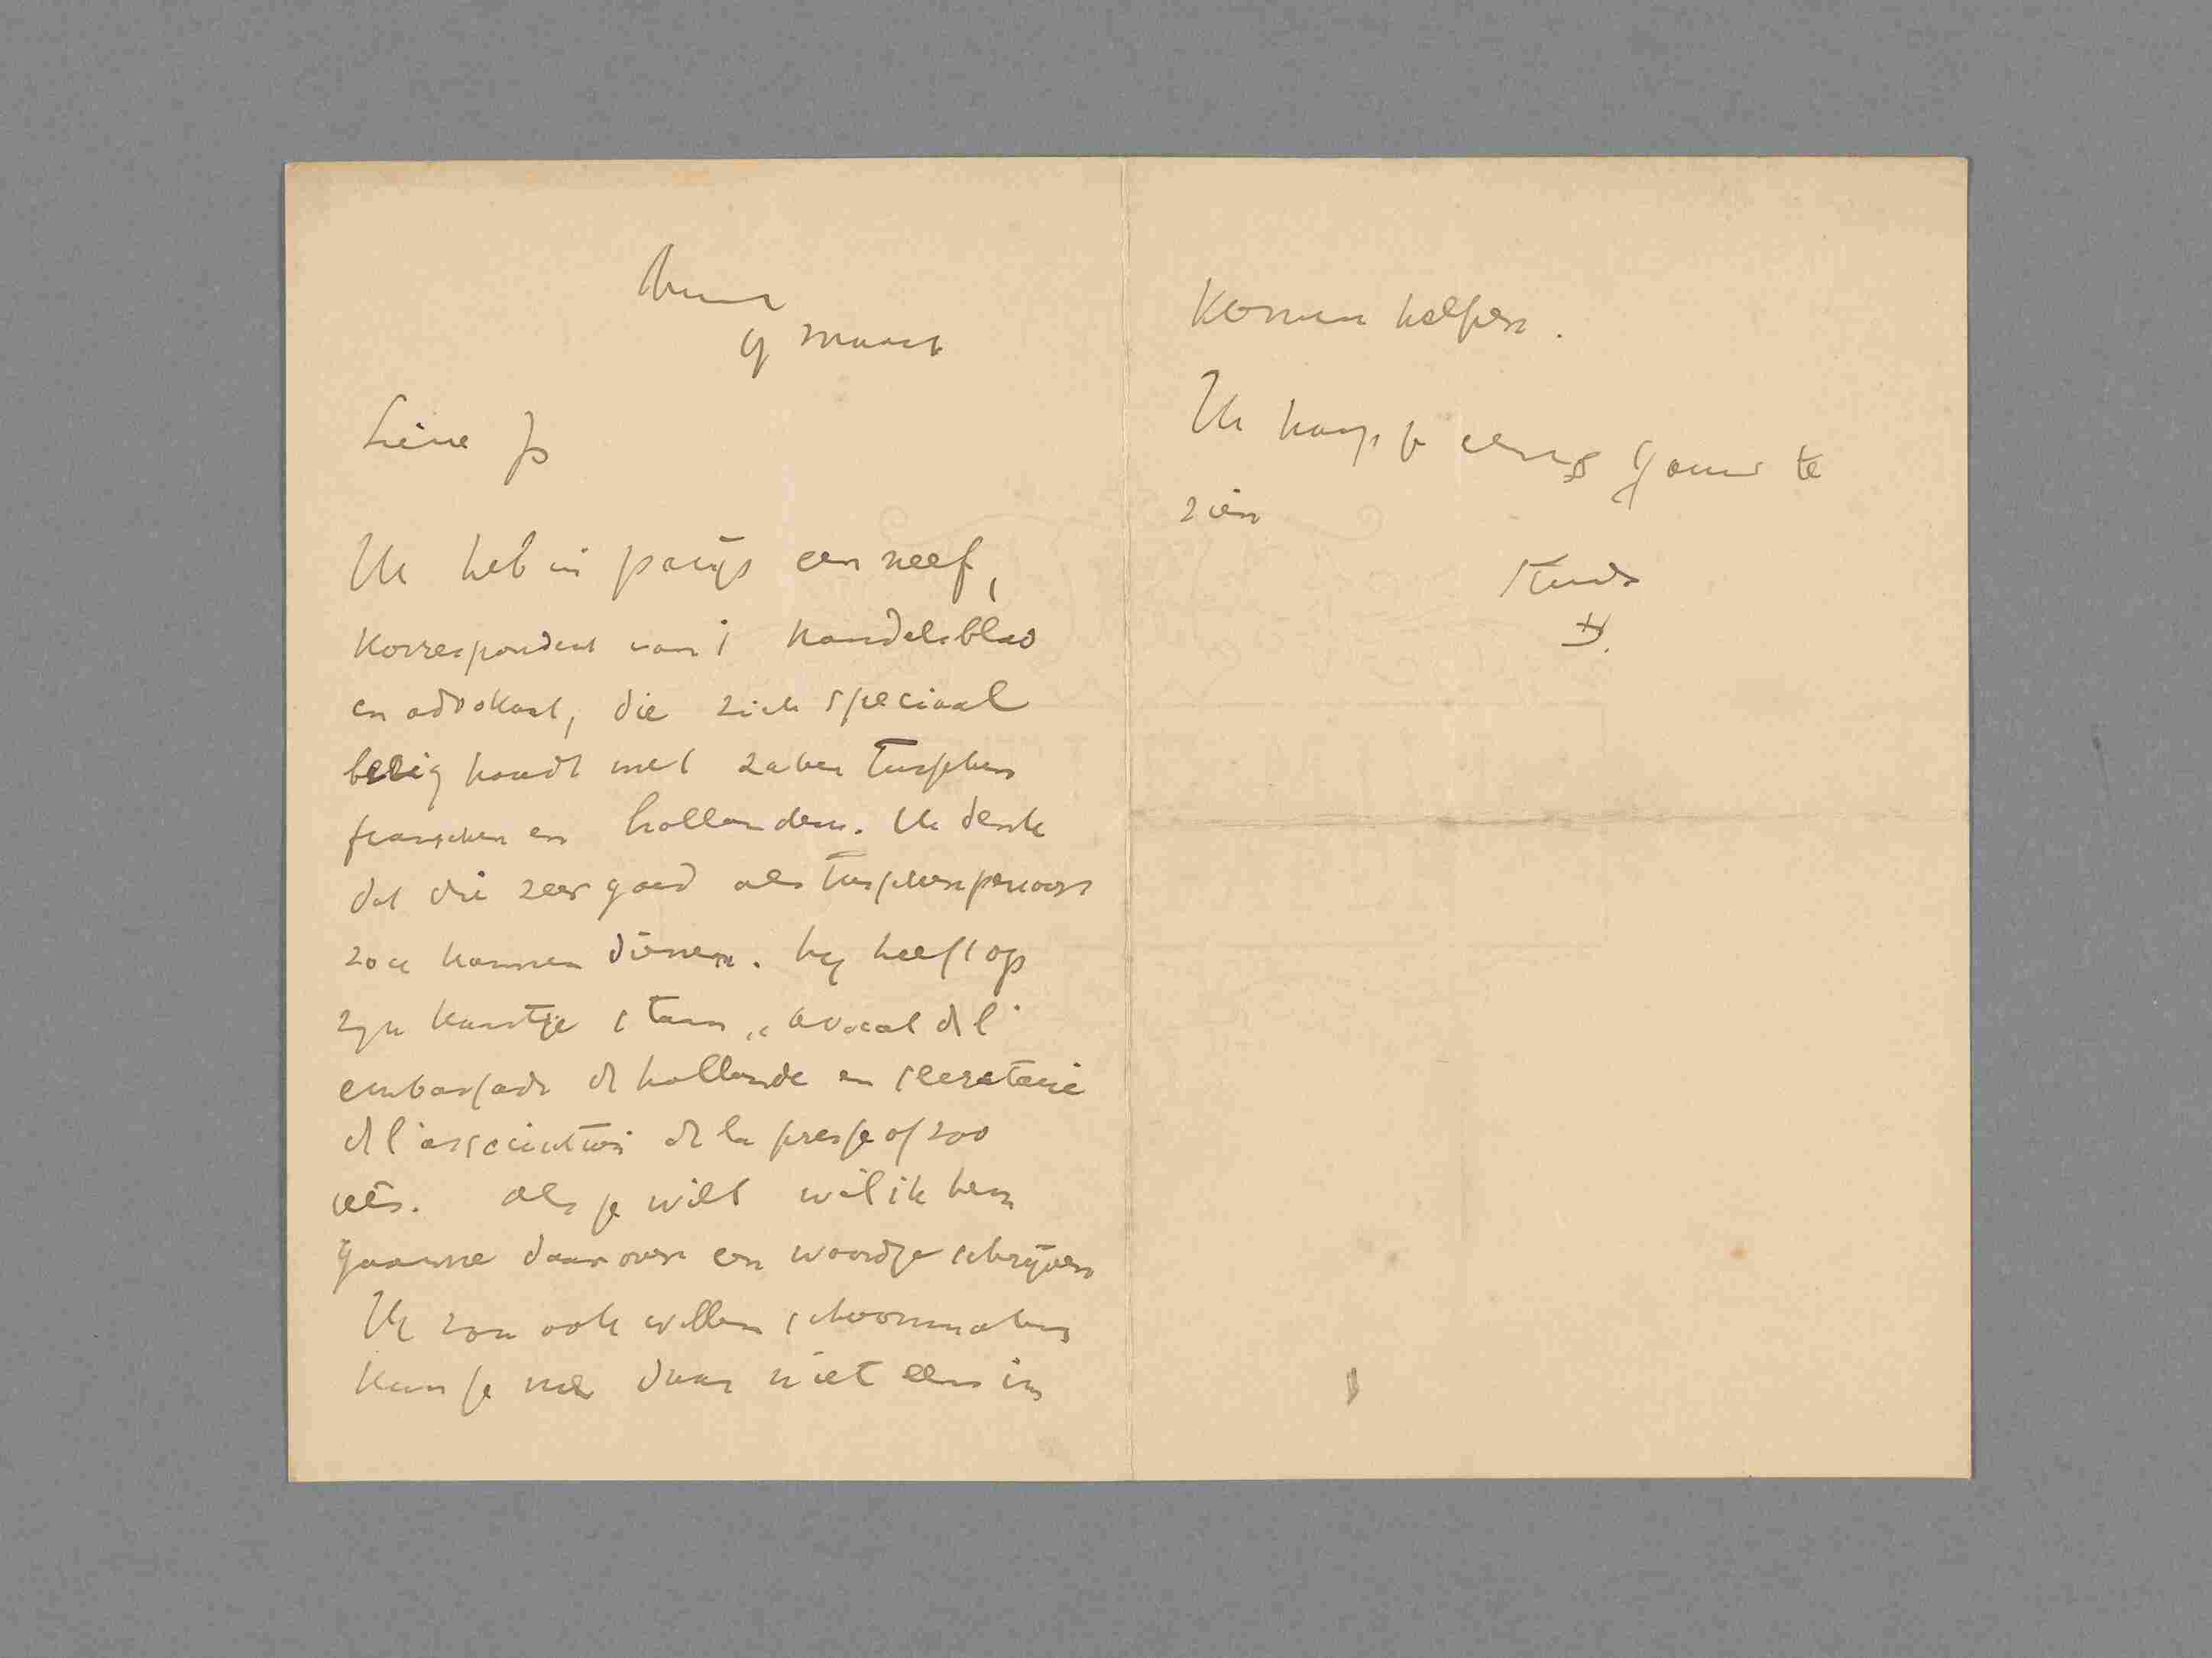 9 maart
Lieve Jo
Ik heb in parijs een neef,
korrespondent van 't handelsblad
en advokaat, die zich speciaal
bezig houdt met zaken tusschen
franschen en hollanders. Ik denk
dat die zeer goed als tusschenpersoon
zou kunnen dienen. hij heeft op
zijn kaartje staan „avocat de l'
embassade de hollande en secretaire
de l'association de la presse of zoo
iets. als je wilt wil ik hem
gaarne daarover een woordje schrijven
Ik zou ook willen schoonmaken
kan je me daar niet eens in
komen helpen.
Ik hoop je eens gauw te
zien